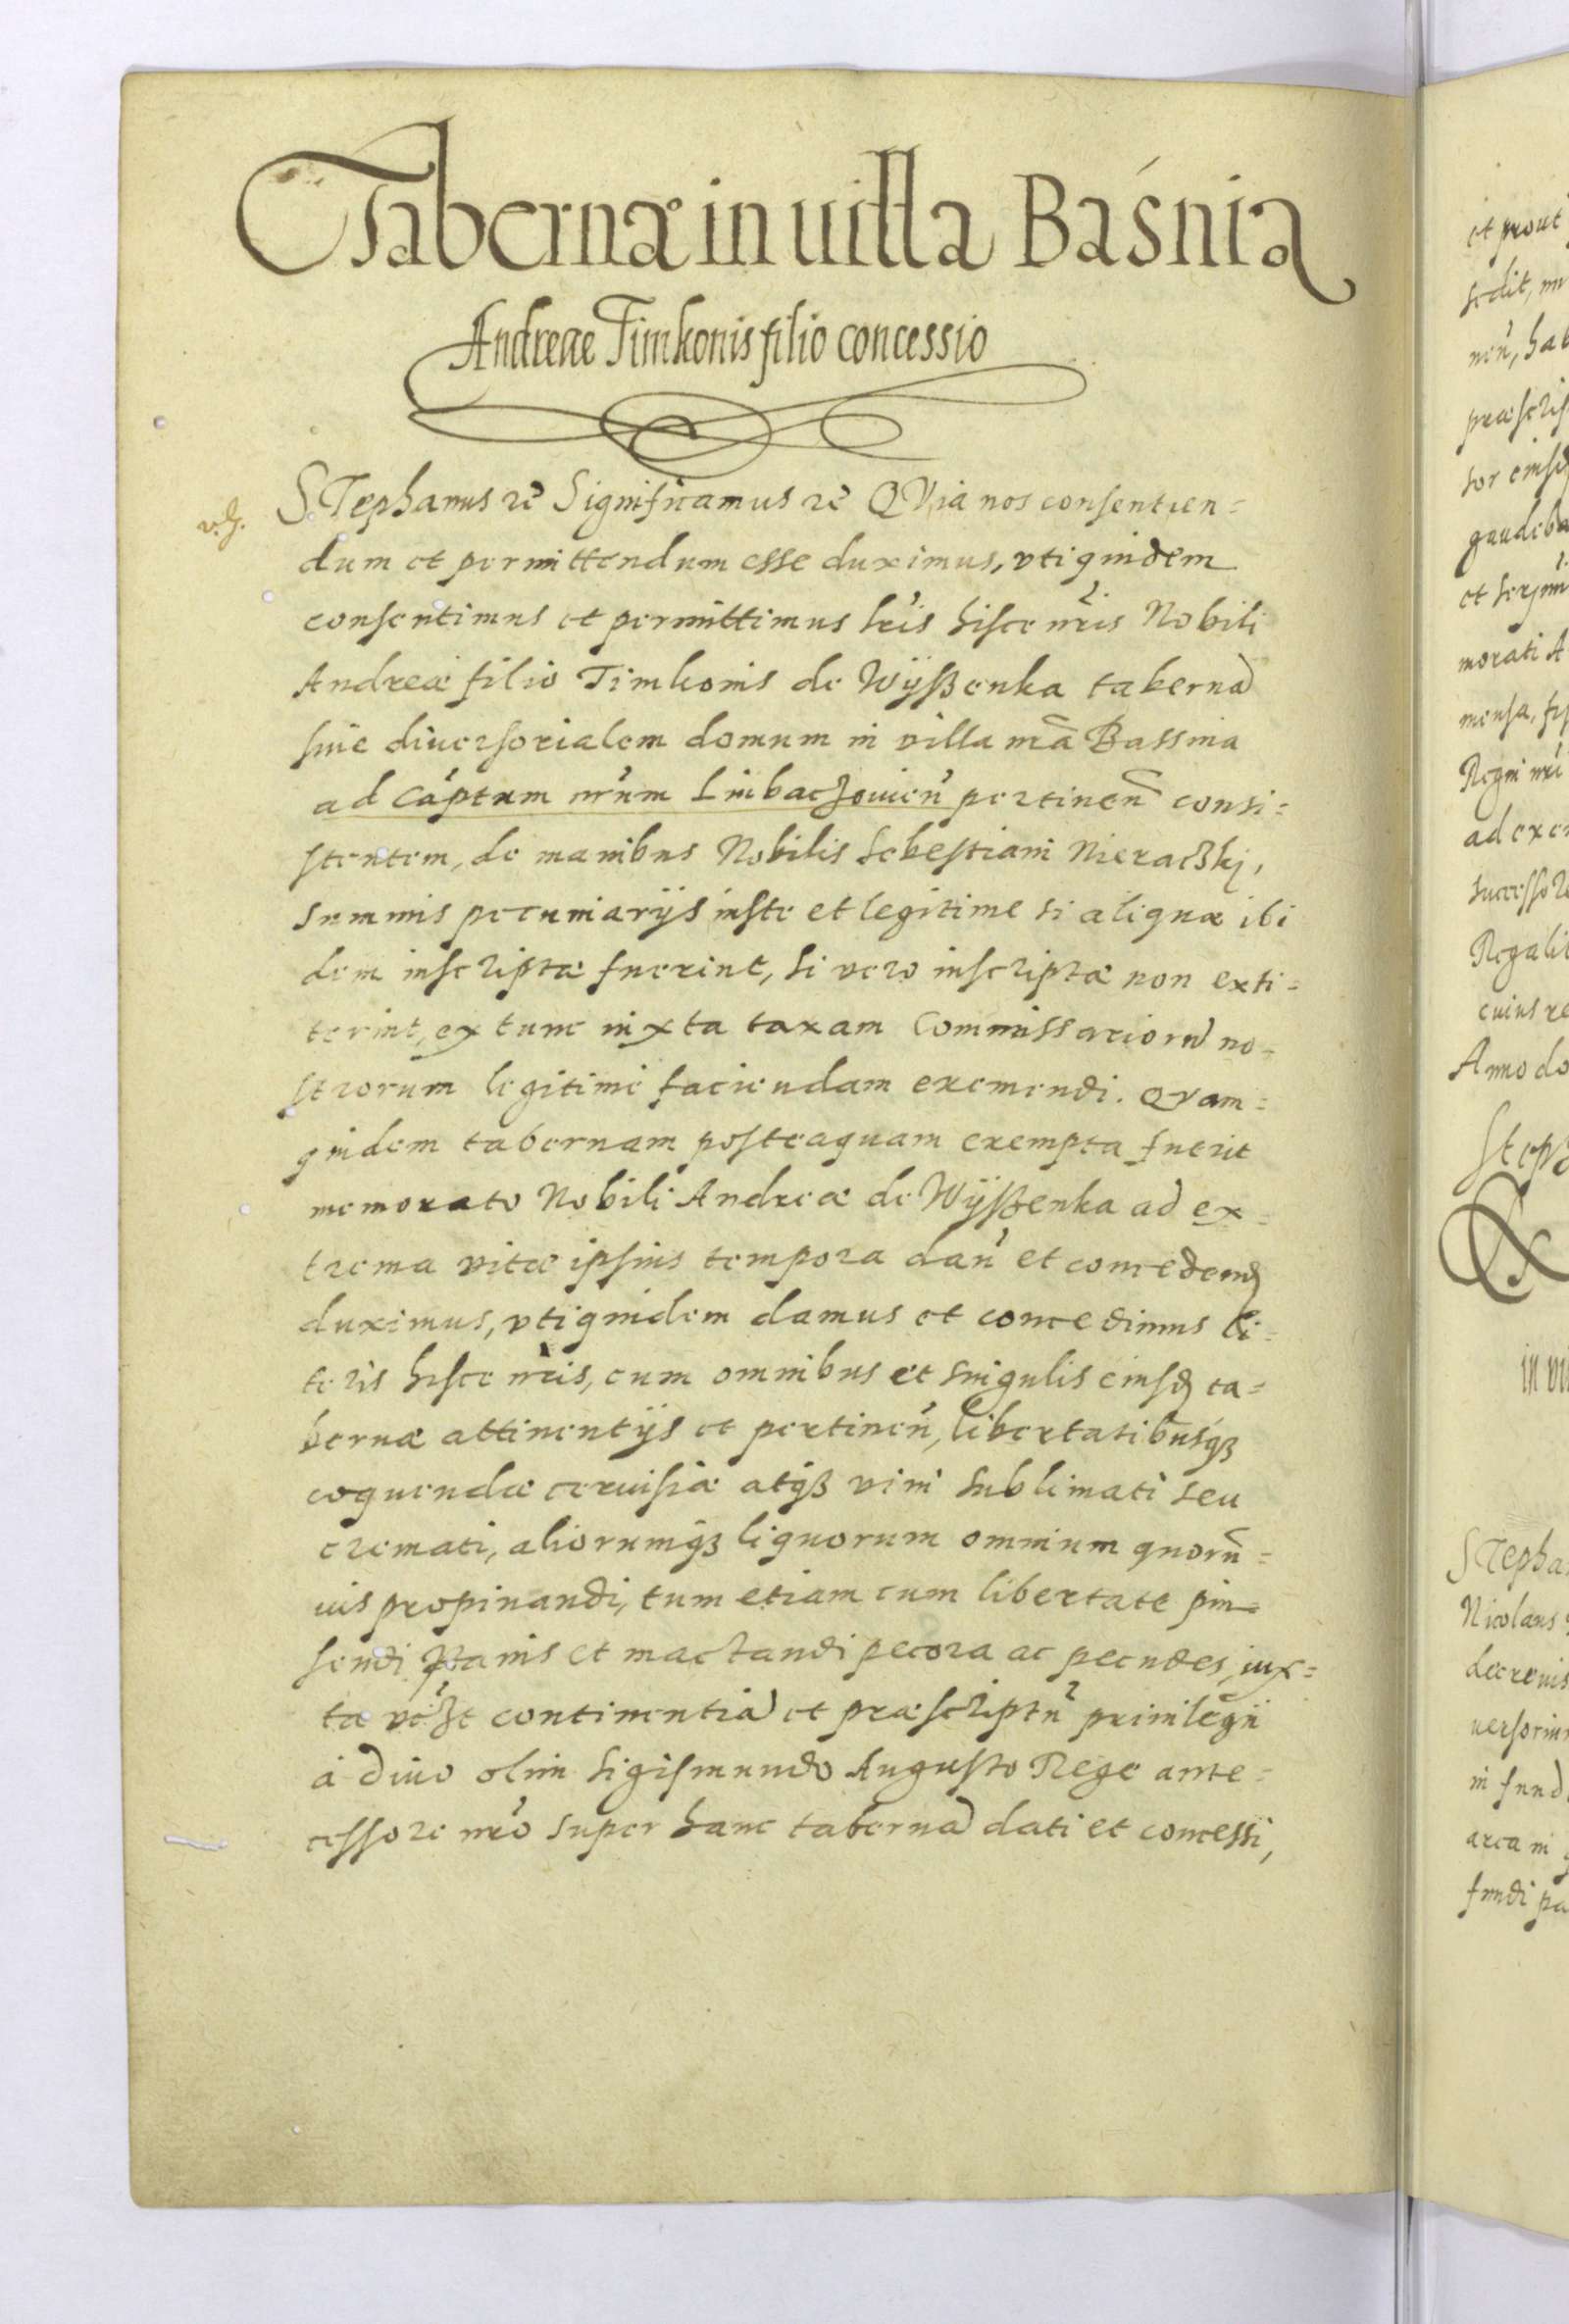 Tabernæ in uilla Baśnia
Andreae Timkonis filio concessio
STephanus rē Significamus rē QVia nos consentien=
dum et permittendum esse duximus, vtiquidem
consentimus et permittimus lrīs hisce nrīs Nobili
Andreæ filio Timkonis de Wÿssenka tabernā
siue diuersorialem domum in villa nrā Bassnia
ad Cāptum nrūm Lubaczouien̄ pertinen̄ consi=
stentem, de manibus Nobilis Sebestiani Nieraczkj,
summis pecuniarijs iuste et legitime si aliquæ ibi
dem inscriptæ fuerint, si vero inscriptæ non exti=
terint, ex tunc iuxta taxam Commissariorū no=
strorum legitimè faciendam exemendi. QVam=
quidem tabernam posteaquam exempta fuerit
memorato Nobili Andreæ de Wÿssenka ad ex=
trema vitæ ipsius tempora dan̄ et concedend̄
duximus, vtiquidem damus et concedimus li=
teris hisce nrīs, cum omnibus et singulis eiusd̄ ta=
bernæ attinentijs et pertinen̄, libertatibusq3
coquendæ ceruisiæ atq3 vini sublimati seu
cremati, aliorumq3 liquorum omnium quorū=
uis propinandi, tum etiam cum libertate pin=
sendi panis et mactandi pecora ac pecudes, iux=
ta continentiā et præscriptū priuilegij
à diuo olim Sigismundo Augusto Rege ante=
cessore nrō super hanc tabernā dati et concessi,
et prout
præscrip
gaudeba
morati A
Regni nrī
ad exe
successo
Regali
cuius re
Anno do
Step
STepha
Nicolaus
decreuis
in fund
area in
fundi pa